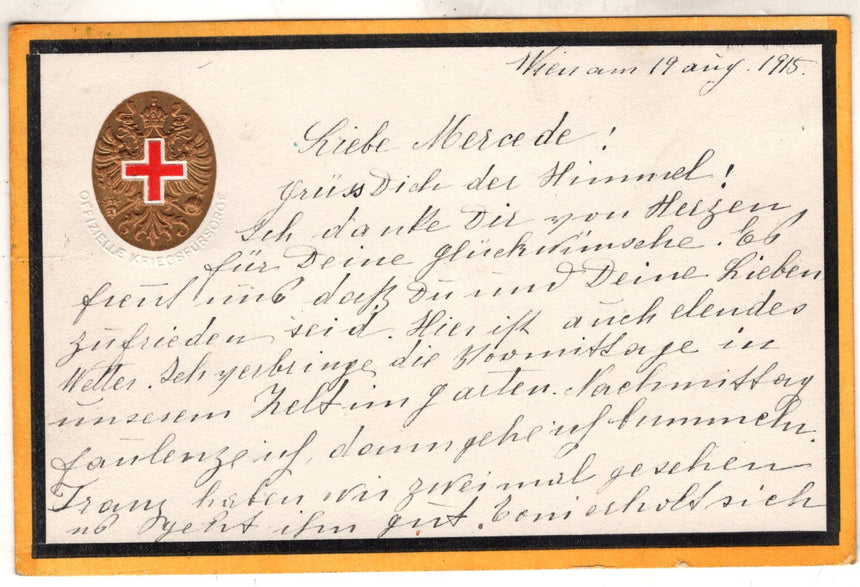 Wien am 19 aug. 1915.
OFFIZIELLE KRIEGSFÜRSORGE
Liebe Mercede!
Grüss Dich der Himmel!
Ich danke Dir von Herzen
für Deine Glückwünsche. Es
freut uns daß Du und Deine Lieben
zufrieden seid. Hier ist auch elendes
Wetter. Ich verbringe die Vormittage in
unserem Zelt im garten. Nachmittag
faulenze ich, dann gehe ich bummeln.
Franz haben wir zweimal gesehen
es geht ihm gut. Toni erholt sich